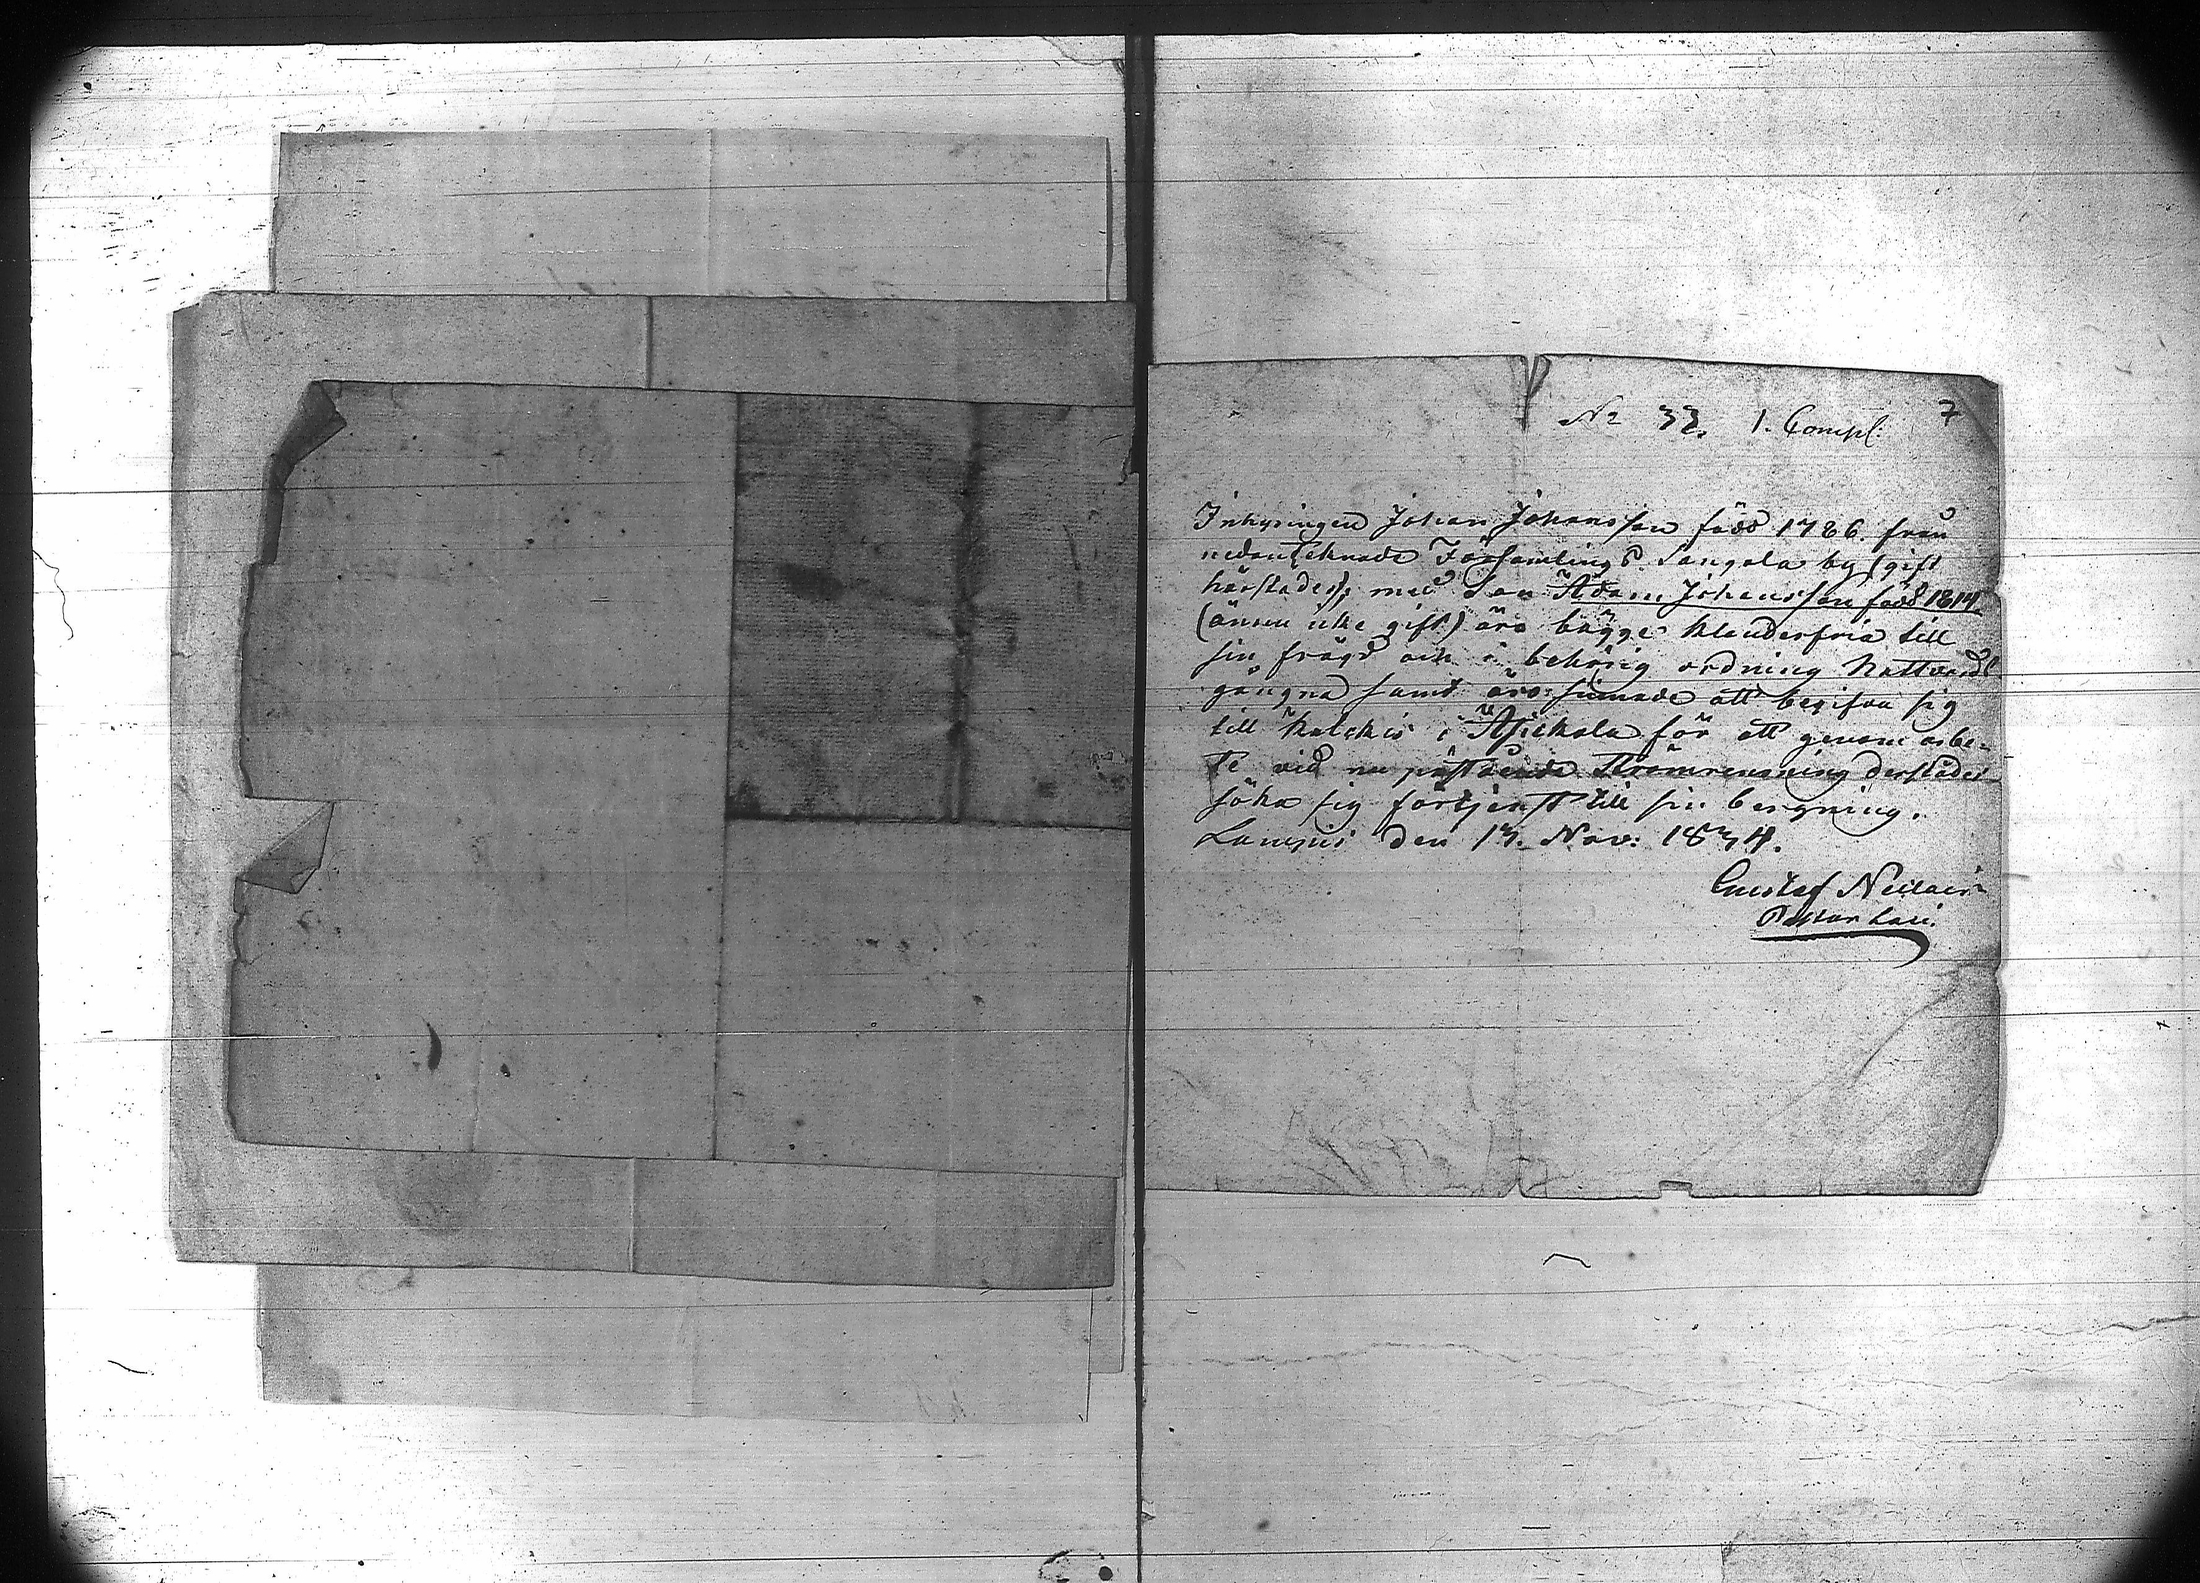 7
N2 33. 1. Compl:
Inhysingen Johan Johansson född 1786. från
nedantecknade Församlings P. Sangala by (gift
härstädes), med Son Adam Johansson född 1814.
(ännu icke gift) äro bägge klanderfria till
sin frägd och i behörig ordning Nattvards
gångna samt äro sinnade att begifva sig
till Kalckis i för att genom arbe-
te vid nu påstående Strömrensning derstädes
söka sig förtjenst till sin bergning.
Lampis den 13. Nov: 1834.
Gustaf
Pastor Loci.